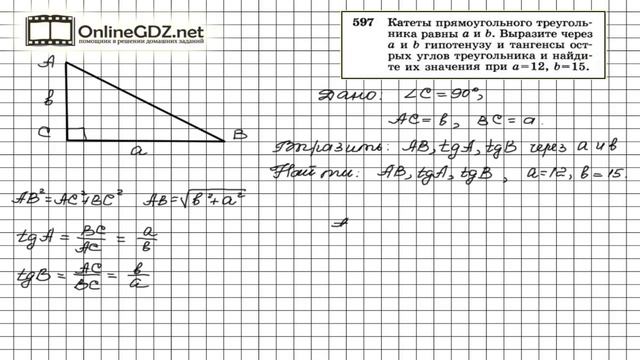 OnlineGDZ.net
помощник в решении домашних заданий
597 Катеты прямоугольного треуголь-
ника равны a и b. Выразите через
a и b гипотенузу и тангенсы ост-
рых углов треугольника и найди-
те их значения при a=12, b=15.
A
в
C
a
B
Дано: ∠C=90°,
AC=в, BC=a.
Выразить: AB, tgA, tgB через a и в
Найти: AB, tgA, tgB, a=12, в=15.
AB²=AC²+BC² AB=√в²+a²
tgA = BC/AC = a/в
tgB = AC/BC = в/a